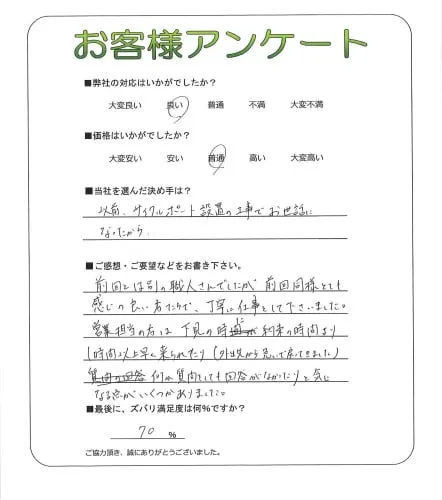 お客様アンケート
■弊社の対応はいかがでしたか？
大変良い 良い 普通 不満 大変不満
■価格はいかがでしたか？
大変安い 安い 普通 高い 大変高い
■当社を選んだ決め手は？
以前、サイクルポート設置の工事でお世話に
なったから。
■ご感想・ご要望などをお書き下さい。
前回とは別の職人さんでしたが、前回同様とても
感じの良い方たちで、丁寧に仕事をして下さいました。
営業担当の方は下見の時に 約束の時間より
1時間以上早く来られたり（外出先から急いで戻ってきました）
質問の回答 何か質問をしても回答がなかったりと気に
なる点がいくつかありました。
■最後に、ズバリ満足度は何％ですか？
70 ％
ご協力頂き、誠にありがとうございました。